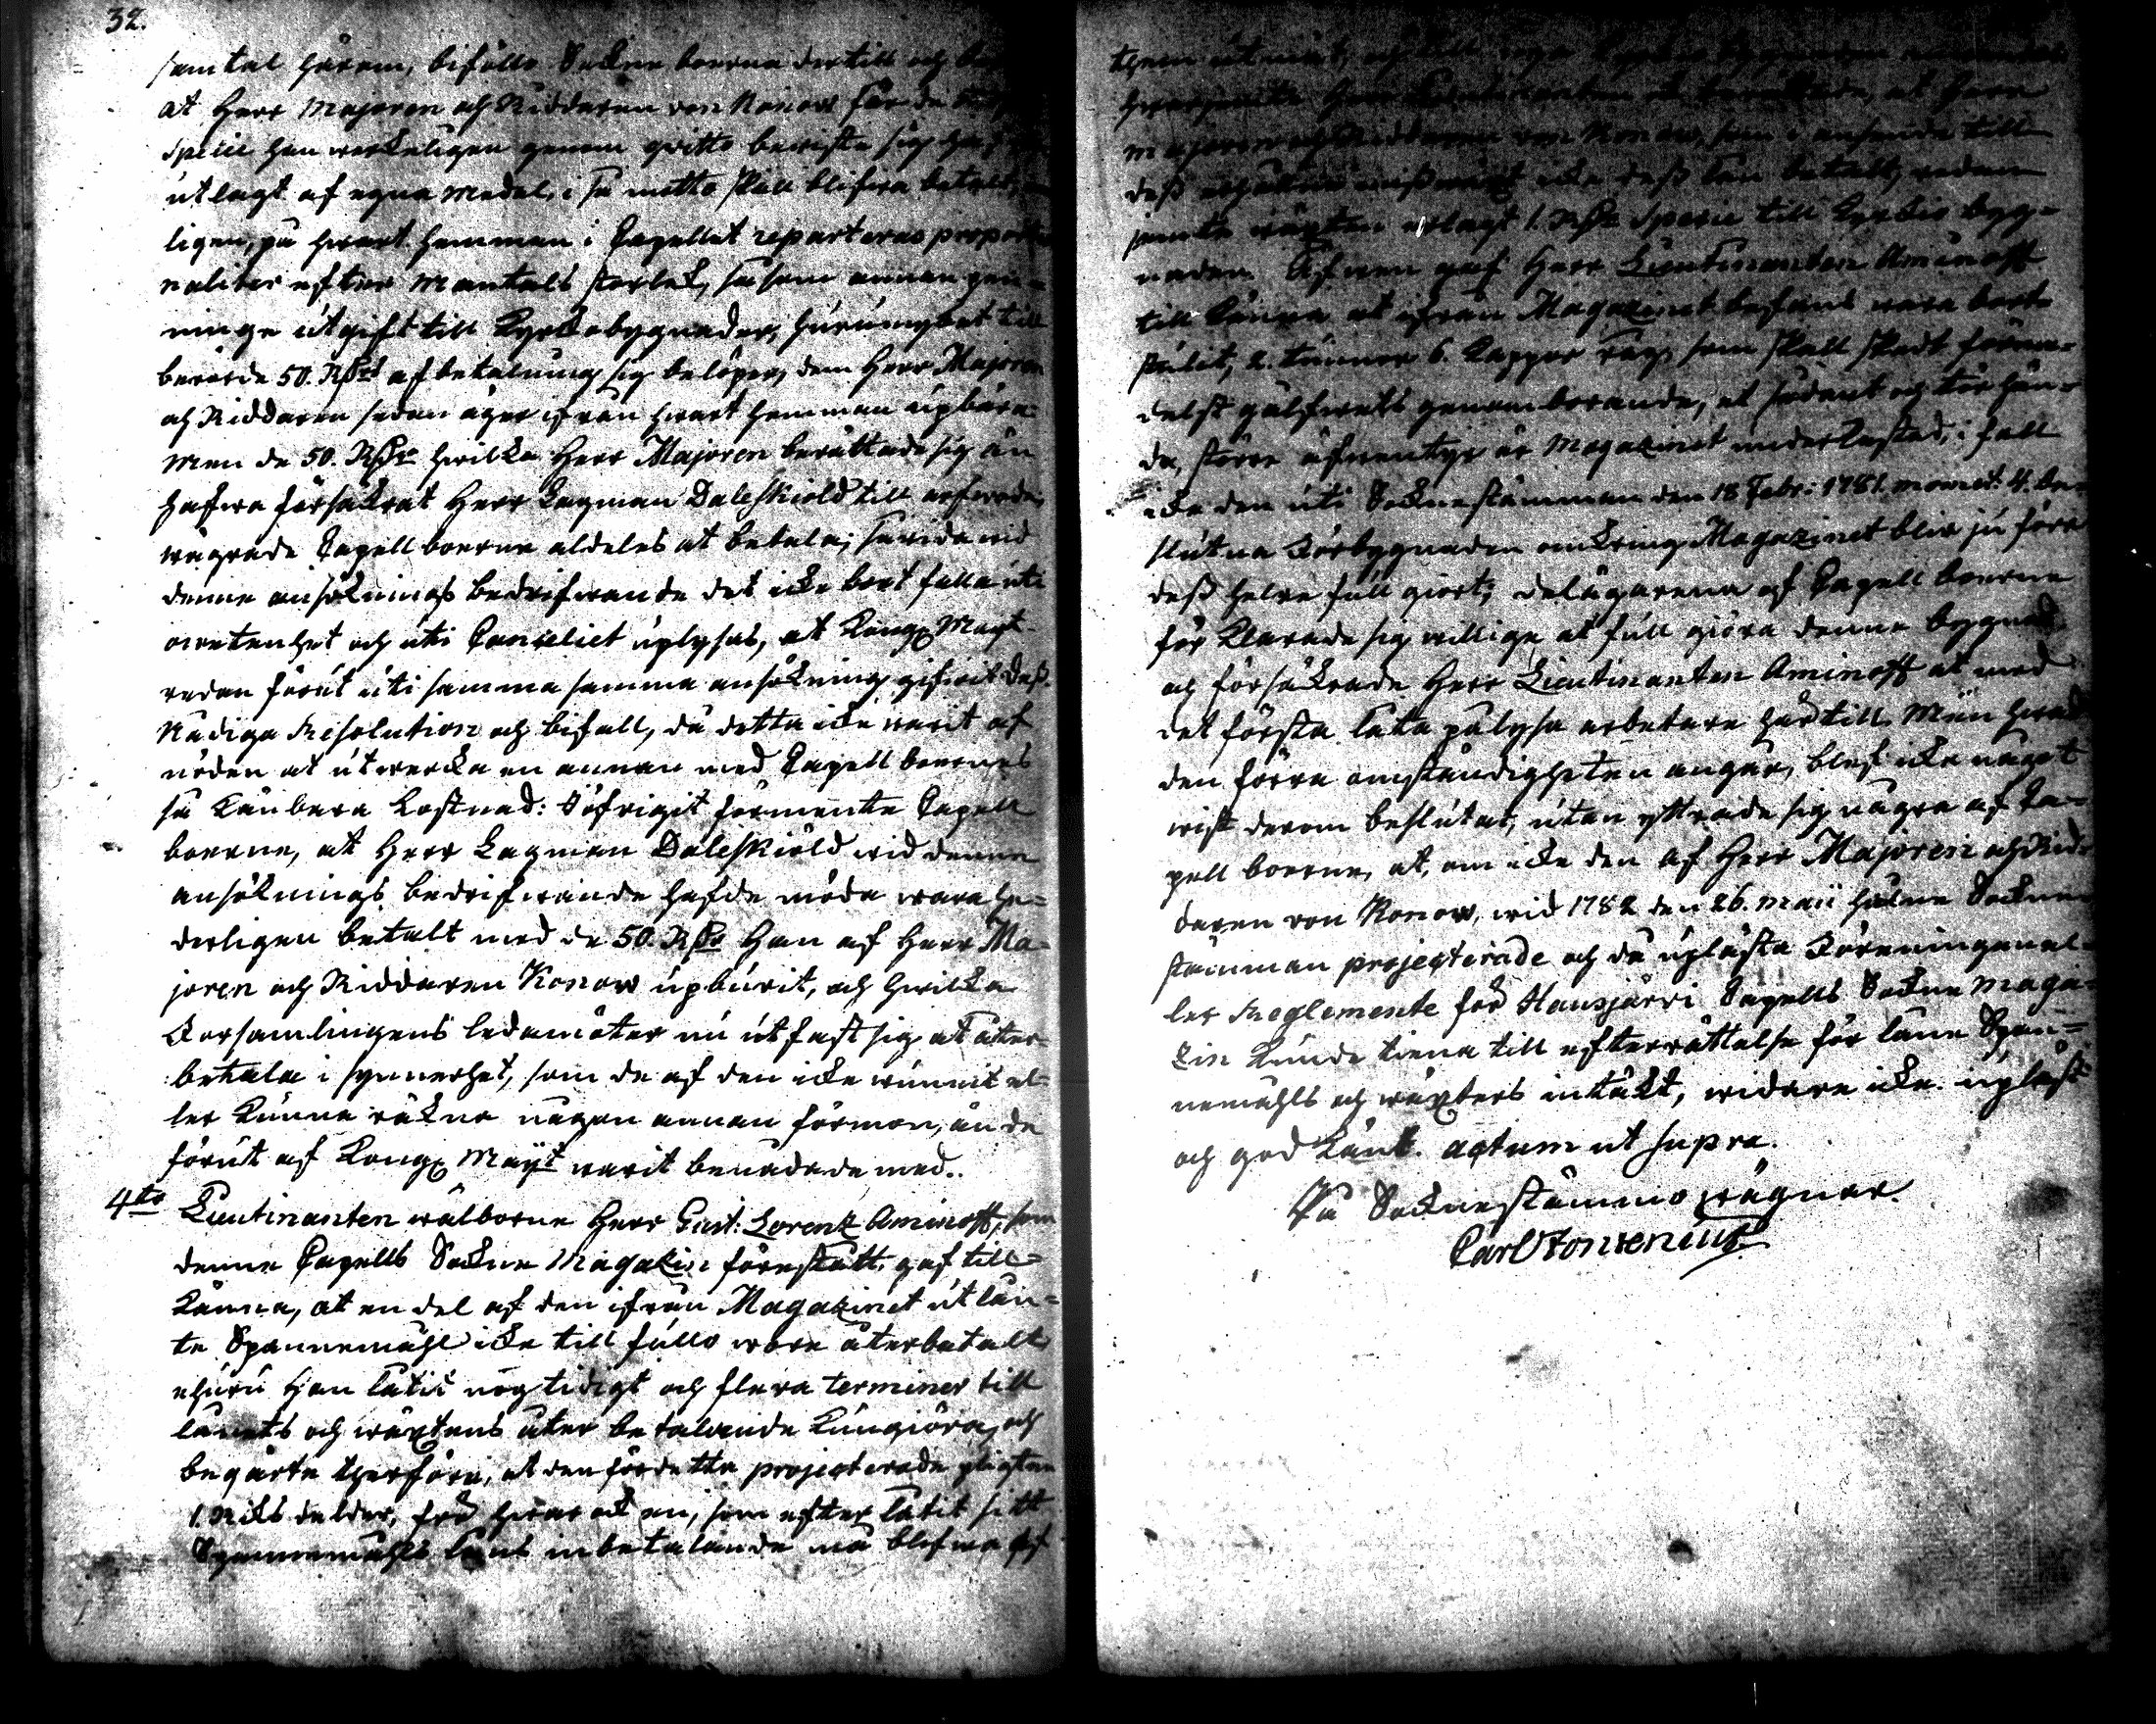 32.
samtal härom, biföllo Sockne boerna dertill och
at Herr Majoren och Riddaren von Konow får de
Specie han werkeligen genom qvitto bewiste sig
utlagt af egna medel, i så matto skall blifwa betalt,
ligen, på hwart hemman i Capellet reparteras proportio
naliter efter mantals storlek, så som annan pen-
ninge utgift till Kyrkobygnader, hurumyket till
berörde 50. Rdr afbetalning sig belöper, dem Herr Majoren
och Riddaren sedan äger ifrån hwart hemman upbära.
Men de 50. Rdr hwilka Herr Majoren berättade sig än
hafwa försäkrat Herr Lagman Daleskiöld till arfwode,
wägrade Capellboerne aldeles at betala; sawida wid
denne ansöknings bedrifwande det icke bort falla uti
owetenhet och uti Cancelliet uplysas, at Kongl. Mayt
redan förut uti samma samma ansökning gifwit dess
Nådiga Resolution och bifall, då detta icke warit af
nöden at utwerka en annan med Capell boernes
så känbara kostnad: Iöfrigit förmente Capell
boerne, at Herr Lagman Daleskiöld wid denna
ansöknings bedrifwande hafde möda wara he-
derligen betalt med de 50. Rdr Han af Herr Ma-
joren och Riddaren Konow upburit, och hwilka
Forsamlingens ledamöter nu utfäst sig at åter-
betala i synnerhet, som de af den icke wunnit el-
ler kunna räkna någon annan förmon, än de
förut af Kongl. Mayt warit benådade med.
4to Lieutinanten wälborne Herr Gust: Lorentz Aminoff, som
denne Capells Sockne Magazin förestått, gaf till-
känna, at en del af den ifrån Magazinet utlän-
te Spannemåhl icke till fullo wore återbetalt
ehuru Han låtit nog tidigt och flera terminer till
lånets och wäxtens åter betalande kungiöra, och
begärte therföre, at den för detta projecterade pligten
1. Riksdaler, för hwar och en, som efter låtit sitt
Spannemåhls låns inbetalande må blifwa af
them
hwarjemte Herr Lieutinanten berättade, at Herr
Majoren och Riddaren von Konow, som i anseende till
dess icke dess lån betalt, redan
jemte wäxten erlagt 1. Rdr Specie till Kyrkio byg-
naden. Äfwen gaf Herr Lieutinanten Aminoff
till känna at ifrån Magazinet befans wara bort-
stulit, 2. tunnor 6. Kappor råg, som skall skedt förme-
delst gålfwets genomborande, at sådant och tör hän-
da, större äfwentyr är Magazinet underkastad, i fall
icke den uti Socknestämman den 18 Febr: 1781. moment: 4. be-
slutna Förbygnaden omkring Magazinet blir ju förr
dess helre full giort; delägarena af Capell boerne
för klarade sig willige at full giöra denne bygnad,
och försäkrade Herr Lieutinanten Aminoff at med
det första låta pålysa arbetare härtill. Men hwad
den förra omständigheten angår, blef icke något
wist derom beslutat, utan yttrade sig några af Ca-
pell boerne, at, om icke den af Herr Majoren och Rid-
daren von Konow, wid 1782 den 26. Maii hålne Sockne-
stämman projecterade och då uplästa Föreningen el-
ler Reglemente för Hausjärvi Capells Sockne Maga-
zin kunde tiena till efterrättelse för låne Span-
nemåhls och wäxters intäkt, widare icke. upläst
och god känt. actum ut supra.
På Socknestämmo wägnar.
Carl Fontenius